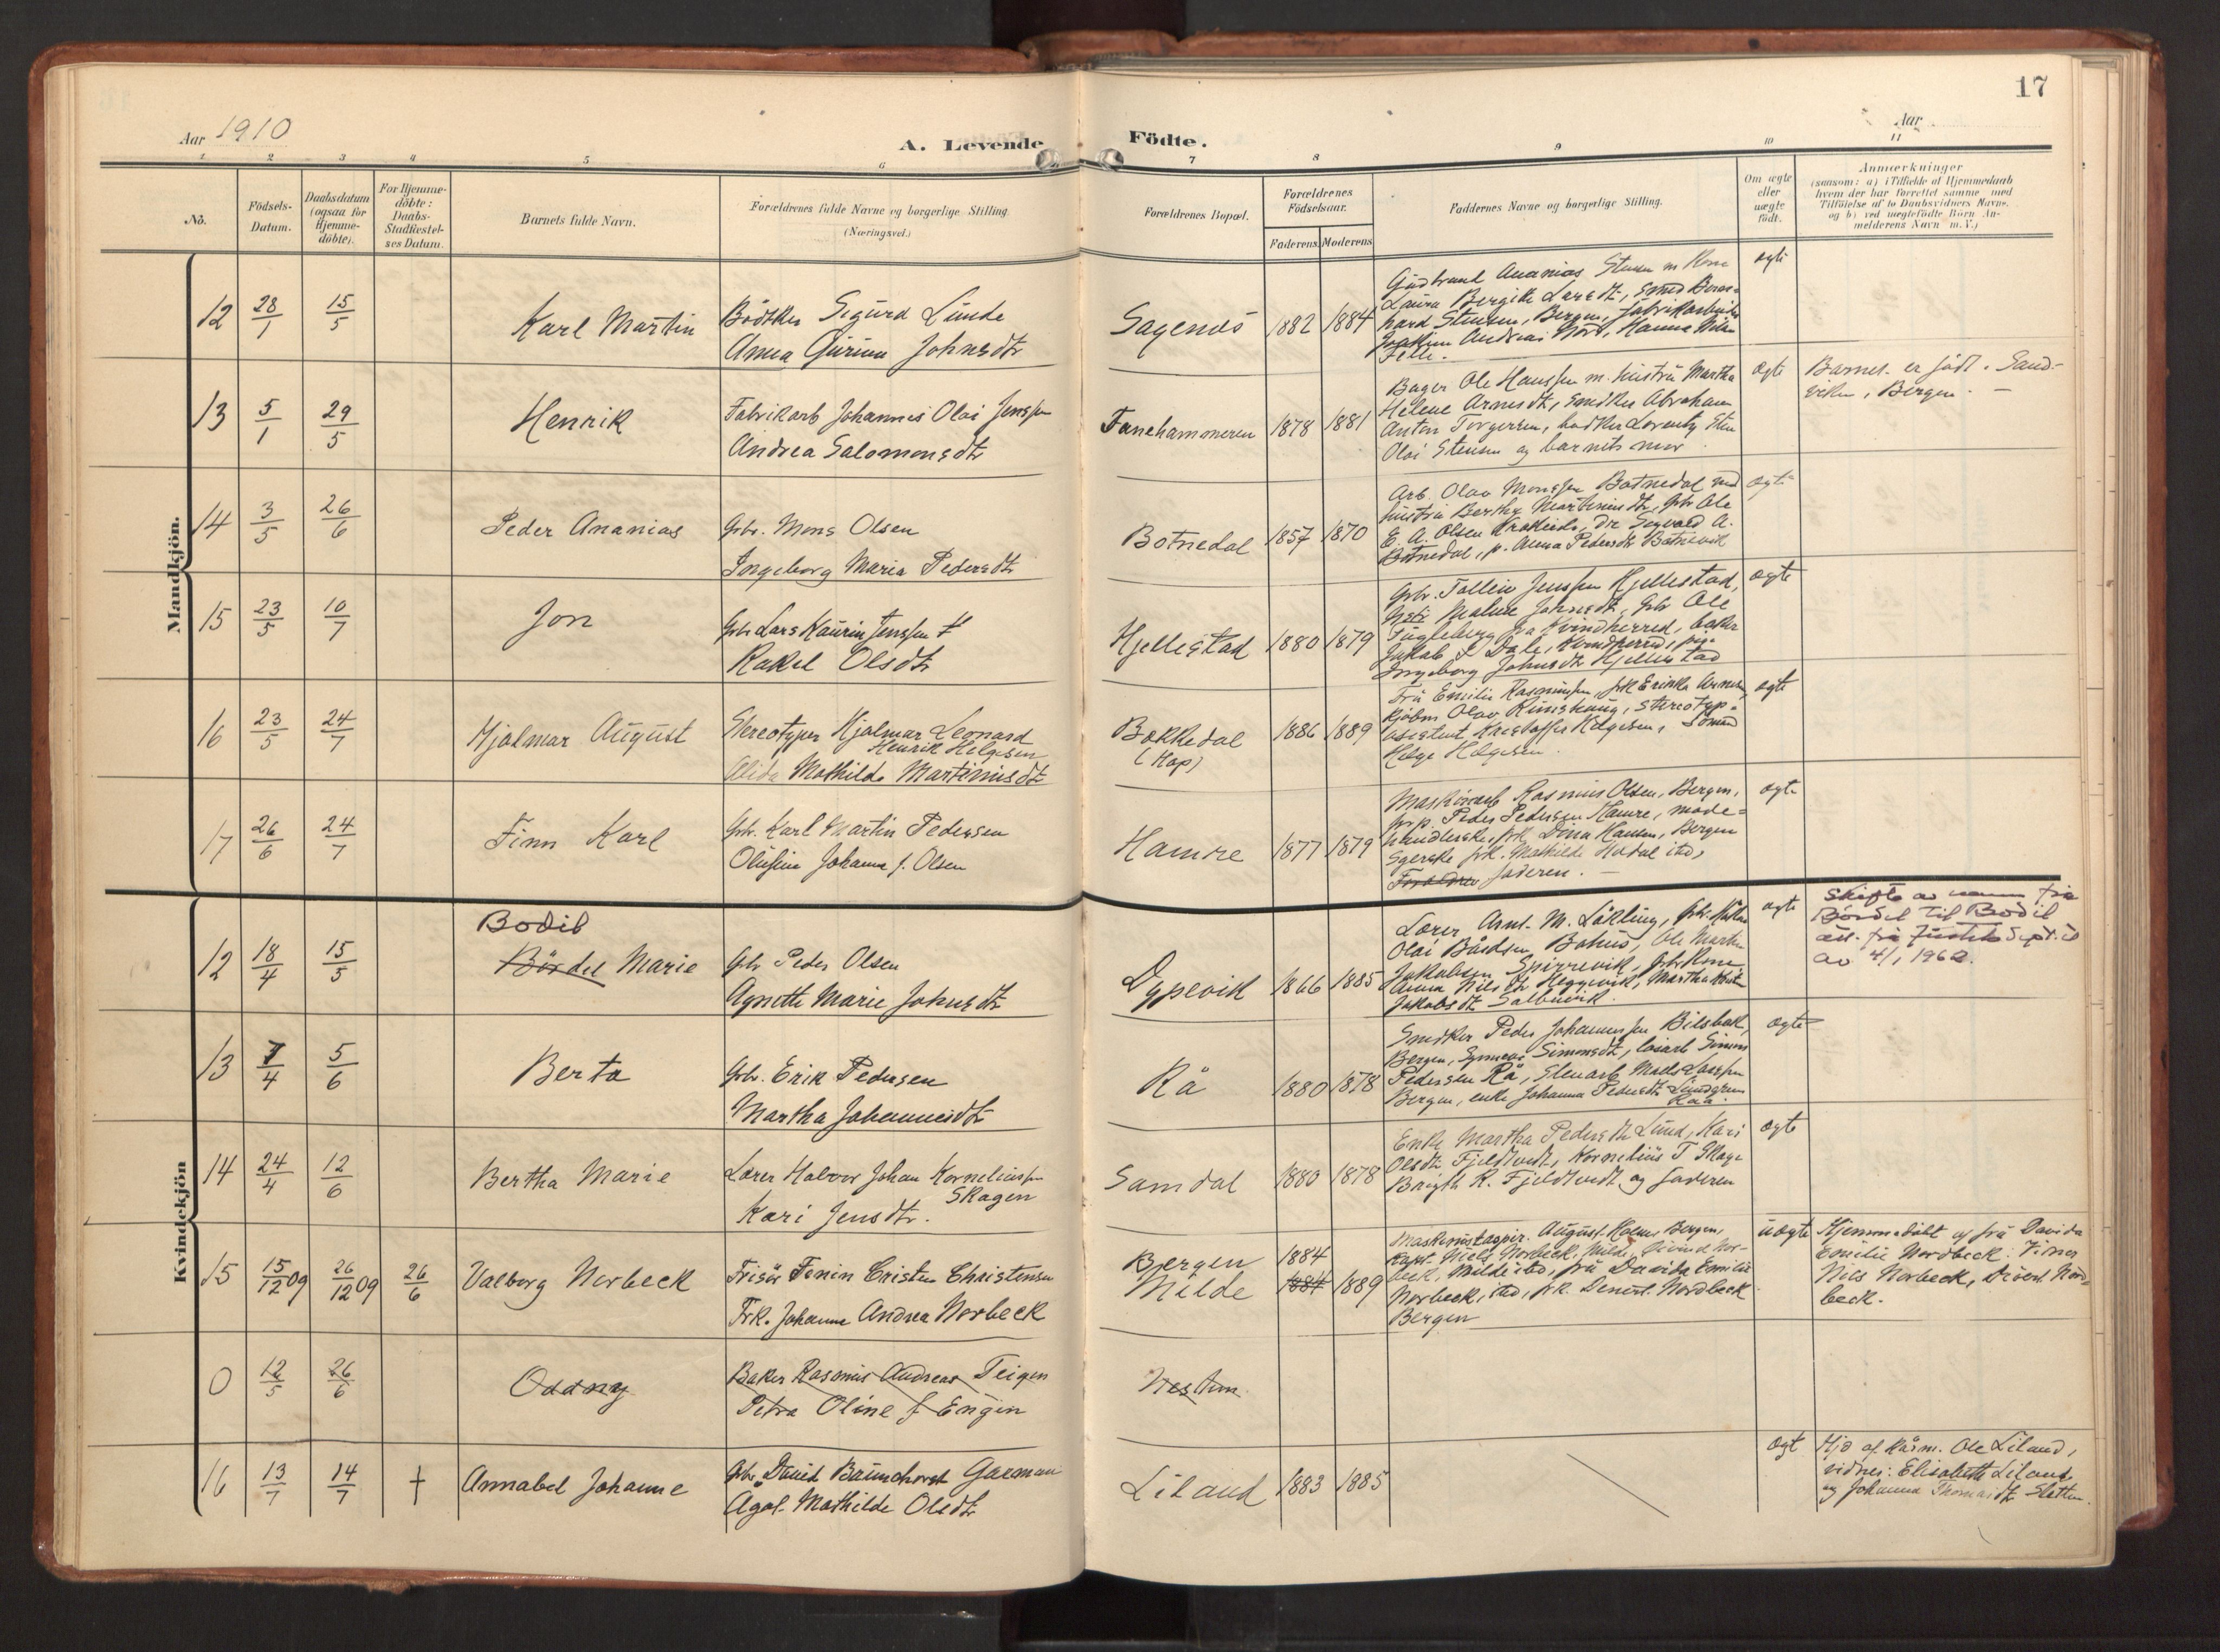 17
Aar 1910
A. Levende Födte.
Aar
1 2 3 4 5 6 7 8 9 10 11
No.
Födsels-
Datum.
Daabsdatum
(ogsaa for
Hjemme-
döbte).
For Hjemme-
döbte:
Daabs-
Stadfæstel-
ses Datum.
Barnets fulde Navn.
Forældrenes fulde Navne og borgerlige Stilling
(Næringsvei.)
Forældrenes Bopæl.
Forældrenes
Födselsaar.
Faderens Moderens
Faddernes Navne og borgerlige Stilling.
Om ægte
eller
uægte
födt.
Anmærkninger
(saasom: a) i Tilfælde af Hjemmedaab
hvem der har forrettet samme med
Tilföielse af to Daabsvidners Navne,
og b) ved uægtefödte Börn An-
melderens Navn m.V.)
Mandkjön.
12 28/1 15/5 Karl Martin
Bödker Sigurd Lunde
Anna Gurine Johnsdtr
Sagenes 1882 1884
Laura Bergitte Larsdtr,
Stensen, Bergen, Fabrikarbeider
Andreas
ægte
13 5/1 29/5 Henrik
Fabrikarb Johannes Olai Jenssen
Andrea Salomonsdtr
Fanehammeren 1878 1881
Bager Ole Hanssen m. hustru Martha
Helene Arnesdtr, Snedker Abraham
Anton Torgersen, bødker Lorentz Sten
Olai Stensen og barnets mor
ægte
Barnet er født i Sand-
viken, Bergen. —
14 3/5 26/6 Peder Ananias
Gbr. Mons Olsen
Ingeborg Maria Pedersdtr
Botnedal 1857 1870
Arb. Olav Monssen Botnedal med
hustru Bertha Martinusdtr, Gbr Ole
E. A. Olsen Sigvard A.
Botnedal, p. Anna Pedersdtr Botnevik
ægte
15 23/5 10/7 Jon
Gbr Lars Kaurin Jenssen
Rakel Olsdtr
Hjellestad 1880 1879
Gbr. Tollein Jenssen Hjellestad,
Malene Johnsdtr, Gbr Ole
Fugleberg fra Kvindherred,
Jakob Dale, Kvindherred, pige
Ingeborg Johnsdtr Hjellestad
ægte
16 23/5 24/7 Hjalmar August
Stereotypør Hjalmar Leonard
Henrik Helgesen
Alida Mathilde Martinusdtr
Bokkedal
(Hop)
1886 1889
Fru Emilie Rasmussen, frk Erikka
kjøbm Olav Runshaug, stereotyp-
assistent Kristoffer Helgesen, Sömand
Helge Helgesen.
ægte
17 26/6 24/7 Finn Karl
Gbr. Karl Martin Pedersen
Olufine Johanna f. Olsen
Hamre 1877 1879
Maskinarb Rasmus Olsen, Bergen,
Peder Pedersen Hamre, mode-
handlerske frk. Dina Hansen, Bergen
Syerske frk. Mathilde
Forældre faderen. —
ægte
Kvindekjön
12 18/4 15/5
Bodil
Bördel Marie
Gbr Peder Olsen
Agnethe Marie Johnsdtr
Dypevik 1866 1885
Lærer Arnt. M. Lökling,
Olai Bårdsen Bahus, Ole Martin
Jakobsen Spirrevik, Gbrkone
Anna Nilsdtr Heggevik, Martha
Jakobsdtr Salbuvik.
ægte
Skifte av namn frå
Bördel til Bodil
frå Justitsdept.
av 4/1 1962.
13 7/4 5/6 Berta
Gbr. Erik Pedersen
Martha Johannesdtr
Rå 1880 1878
Snedker Peder Johannessen Bilsbak,
Bergen, Synneva Simonsdtr, Simon
Pederssen Rå, Stenarb Mads Larssen
Bergen, enke Johanna Pedersdtr Lindgren
Råa.
ægte
14 24/4 12/6 Bertha Marie
Lærer Halvor Johan Korneliussen
Skagen
Kari Jensdtr.
Samdal 1880 1878
Enke Martha Pedersdtr Lund, Kari
Olsdtr Fjeldtvedt, Kornelius T Skage
K. Fjeldtvedt og faderen
ægte
15 15/12 09 26/12 09 26/6 Valborg Norbeck
Frisör Fenin Cristen Christensen
Frk. Johanne Andrea Norbeck
Bergen 1884
Milde 1884 1889
August Holm, Bergen,
Kapt. Niels Norbeck, Milde, Eivind Nor-
beck, Milde, fru Davida Emilie
Norbeck, frk. Nordbeck
Bergen
uægte
Hjemmedöbt af fru Davida
Emilie Nordbeck. Vidner
Nils Norbeck, Nord-
beck.
0 12/5 26/6 Oddny
Baker Rasmus Andreas Teigen
Petra Oline f Engen
Nestun
16 13/7 14/7 † Annabel Johanne
Gbr David Baumchorst Garman
Agot Mathilde Olsdtr
Liland 1883 1885
ægt
Hjd af Ole Liland,
vidner: Elisabeth Liland
og Johanna Thomasdtr